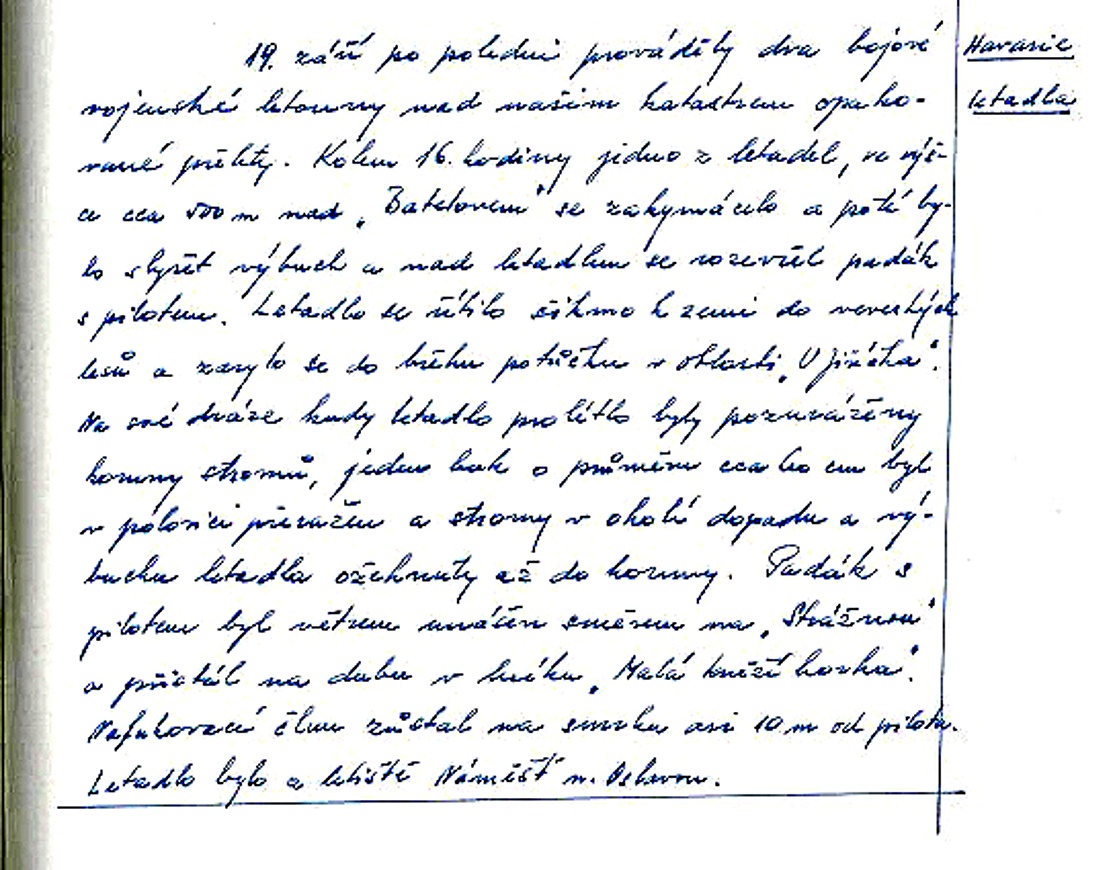 19. září po poledni prováděly dva bojové
Havarie
vojenské letouny nad našim katastrem opako-
letadla
vané přelety. Kolem 16. hodiny jedno z letadel, ve výš-
ce cca 500 m nad „Batelovem" se zakymácelo a poté by-
lo slyšet výbuch a nad letadlem se rozevřel padák
s pilotem. Letadlo se řítilo šikmo k zemi do neveských
lesů a zarylo se do břehu potůčku v oblasti „U Jiráčka".
Na své dráze kudy letadlo prolétlo byly pozurážены
koruny stromů, jeden buk o průměru cca 40 cm byl
v polovici přeražen a stromy v okolí dopadu a vý-
buchu letadla ožehnuty až do koruny. Padák s
pilotem byl větrem unášen směrem na „Strážnou"
a přistál na dubu v lesíku „Malá kněží horka".
Nafukovací člun zůstal na smrku asi 10 m od pilota.
Letadlo bylo z letiště Náměšť n. Oslavou.